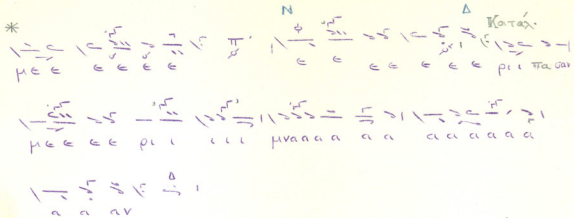 Ν Δ Κατάχ.
με ε ε ε ε ε π ε ε ε ε ε ε ε ρι ι πα σαν
με ε ε ε ρι ι ι ι ι μνα α α α α α α α α α α α
α α αν Δ